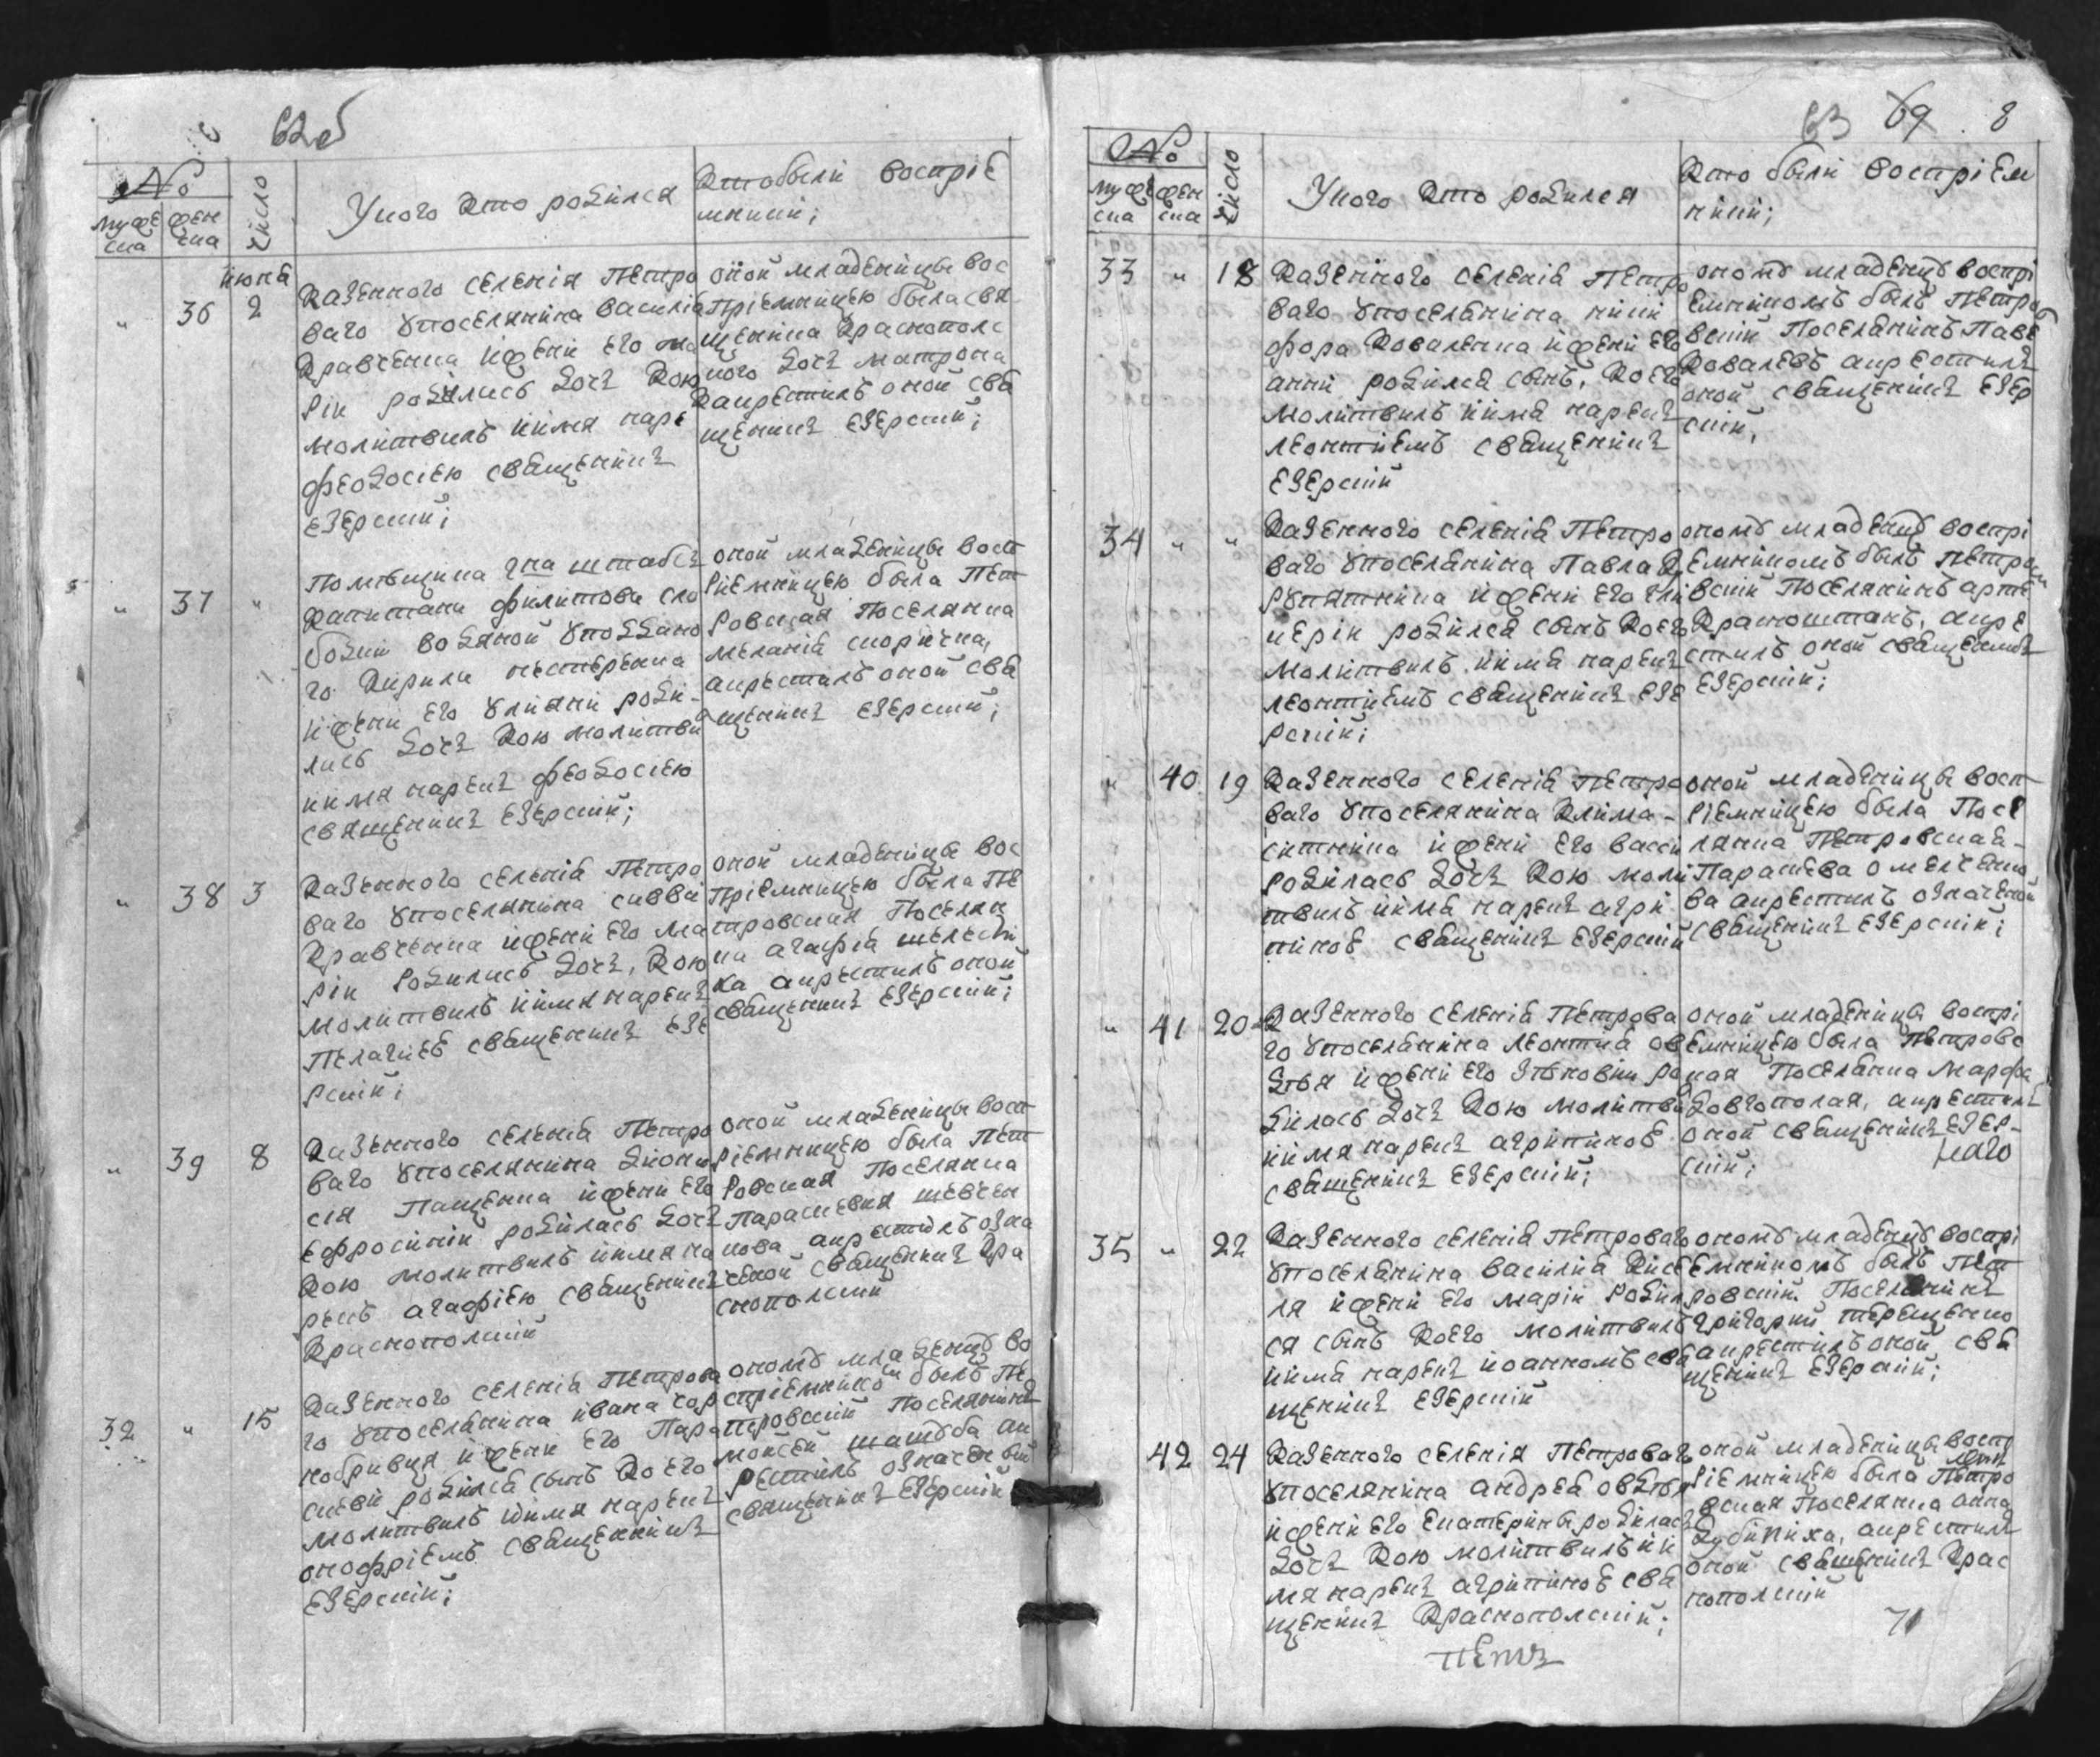 62об
№
мужеска
женска
число
У кого кто родился
Кто были восприе
мники;
июня
" 36 2
Казенного селения Петро
ваго у поселянина василия
Кравченка и жени его ма
рии родилась дочь Кою
молитвилъ и имя наре
феодосиею священникъ
езерский;
оной младеницы вос
приемницею была свя
щенника Краснополс
кого дочь матрона
а крестилъ оной свя
щенникъ Езерский;
" 37 "
Помещика гна штабсъ
Капитана филипова сло
бодки водяной у поддано
го Кирила нестеренка
и жени его улияни роди-
лась дочь Кою молитви
и имя нареч феодосиею
священникъ Езерский;
оной младеницы восп
риемницею была Пет
ровская поселянка
мелания скорикка,
а крестилъ оной свя
щенникъ езерский;
" 38 3
Казенного селения Петро
ваго у поселянина саввы
Кравченка и жени его ма
рии родилась дочь, Кою
молитвилъ и имя нареч
Пелагиею священникъ езе
рский;
оной младеницы вос
приемницею была Пе
тровская Поселян
ка агафия шелести
ха а крестилъ оной
священникъ езерский;
" 39 8
Казенного селения Петро
ваго у поселянина диони
сия Пащенка и жени его
ефросинии родилась дочь
Кою молитвилъ и имя на
речъ агафиею священникъ
Краснополский
оной младеницы восп
риемницею была Пет
ровская Поселянка
Параскевия шевчен
кова а крестилъ озна
ченой священникъ Кра
снополский
32 " 15
Казенного селения Петрова
го у поселянина ивана
кобривця и жени его Пара
скеви родился сынъ Коего
молитвилъ и имя нареч
онофриемъ священникъ
Езерский;
оному младенцу во
сприемникомъ былъ Пе
тровский Поселянинъ
моисей а к
рестилъ означеный
священникъ Езерский
63 69 8
№
мужеска
женска
число
У кого кто родился
Кто были восприем
ники;
33 " 18
Казенного селения Петро
ваго у поселянина ники
фора Коваленка и жени его
анни родился сынъ, Коего
молитвилъ и имя нареч
леонтиемъ священникъ
Езерский
оному младенцу воспри
емникомъ былъ Петро
вский Поселянинъ Паве
Ковалевъ а крестилъ
оной священникъ Езер
ский,
34 " "
Казенного селения Петро
ваго у поселянина Павла К
рупятника и жени его гли
керии родился сынъ Коего
молитвилъ и имя нареч
леонтиемъ священникъ езе
рский;
оному младенцу воспри
емникомъ былъ Петров
вский Поселянинъ арте
Красноштанъ, а кре
стилъ оной священикъ
Езерский;
" 40 19
Казенного селения Петро
ваго у поселянина Клима-
ситника и жени его васси
родилась дочь Кою моли
твилъ и имя нареч агри
пиною священникъ Езерский
оной младеницы восп
риемницею была Посе
лянка Петровская-
Параскева омелченко
ва а крестилъ означеной
священникъ Езерский;
" 41 20
Казенного селения Петрова
го у поселянина Леонтия ов
дия и жени его зеновии ро
дилась дочь Кою молитви
и имя нареч агрипиною
священникъ Езерский;
оной младеницы воспри
емницею была Петровс
кая Поселянка Марфа
Довгополая, а крестилъ
оной священникъ Езер-
ский;
35 " 22
Казенного селения Петроваго
у поселянина василия Кисе
ля и жени его марии родил
ся сынъ Коего молитвилъ
и имя нареч иоанномъ свя
щенникъ Езерский
оному младенцу воспри
емникомъ былъ Пет
ровский Поселянинъ
григорий терещенко
а крестилъ оной свя
щенникъ Езерский;
42 24
Казенного селения Петроваго
у поселянина андрея овдия
и жени его екатерины родилась
дочь Кою молитвилъ и и
мя нареч агрипиною свя
щенникъ Краснополский;
оной младеницы восп
риемницею была Петро
вская Поселянка анна
а крестилъ
оной священникъ Крас
нополский
71